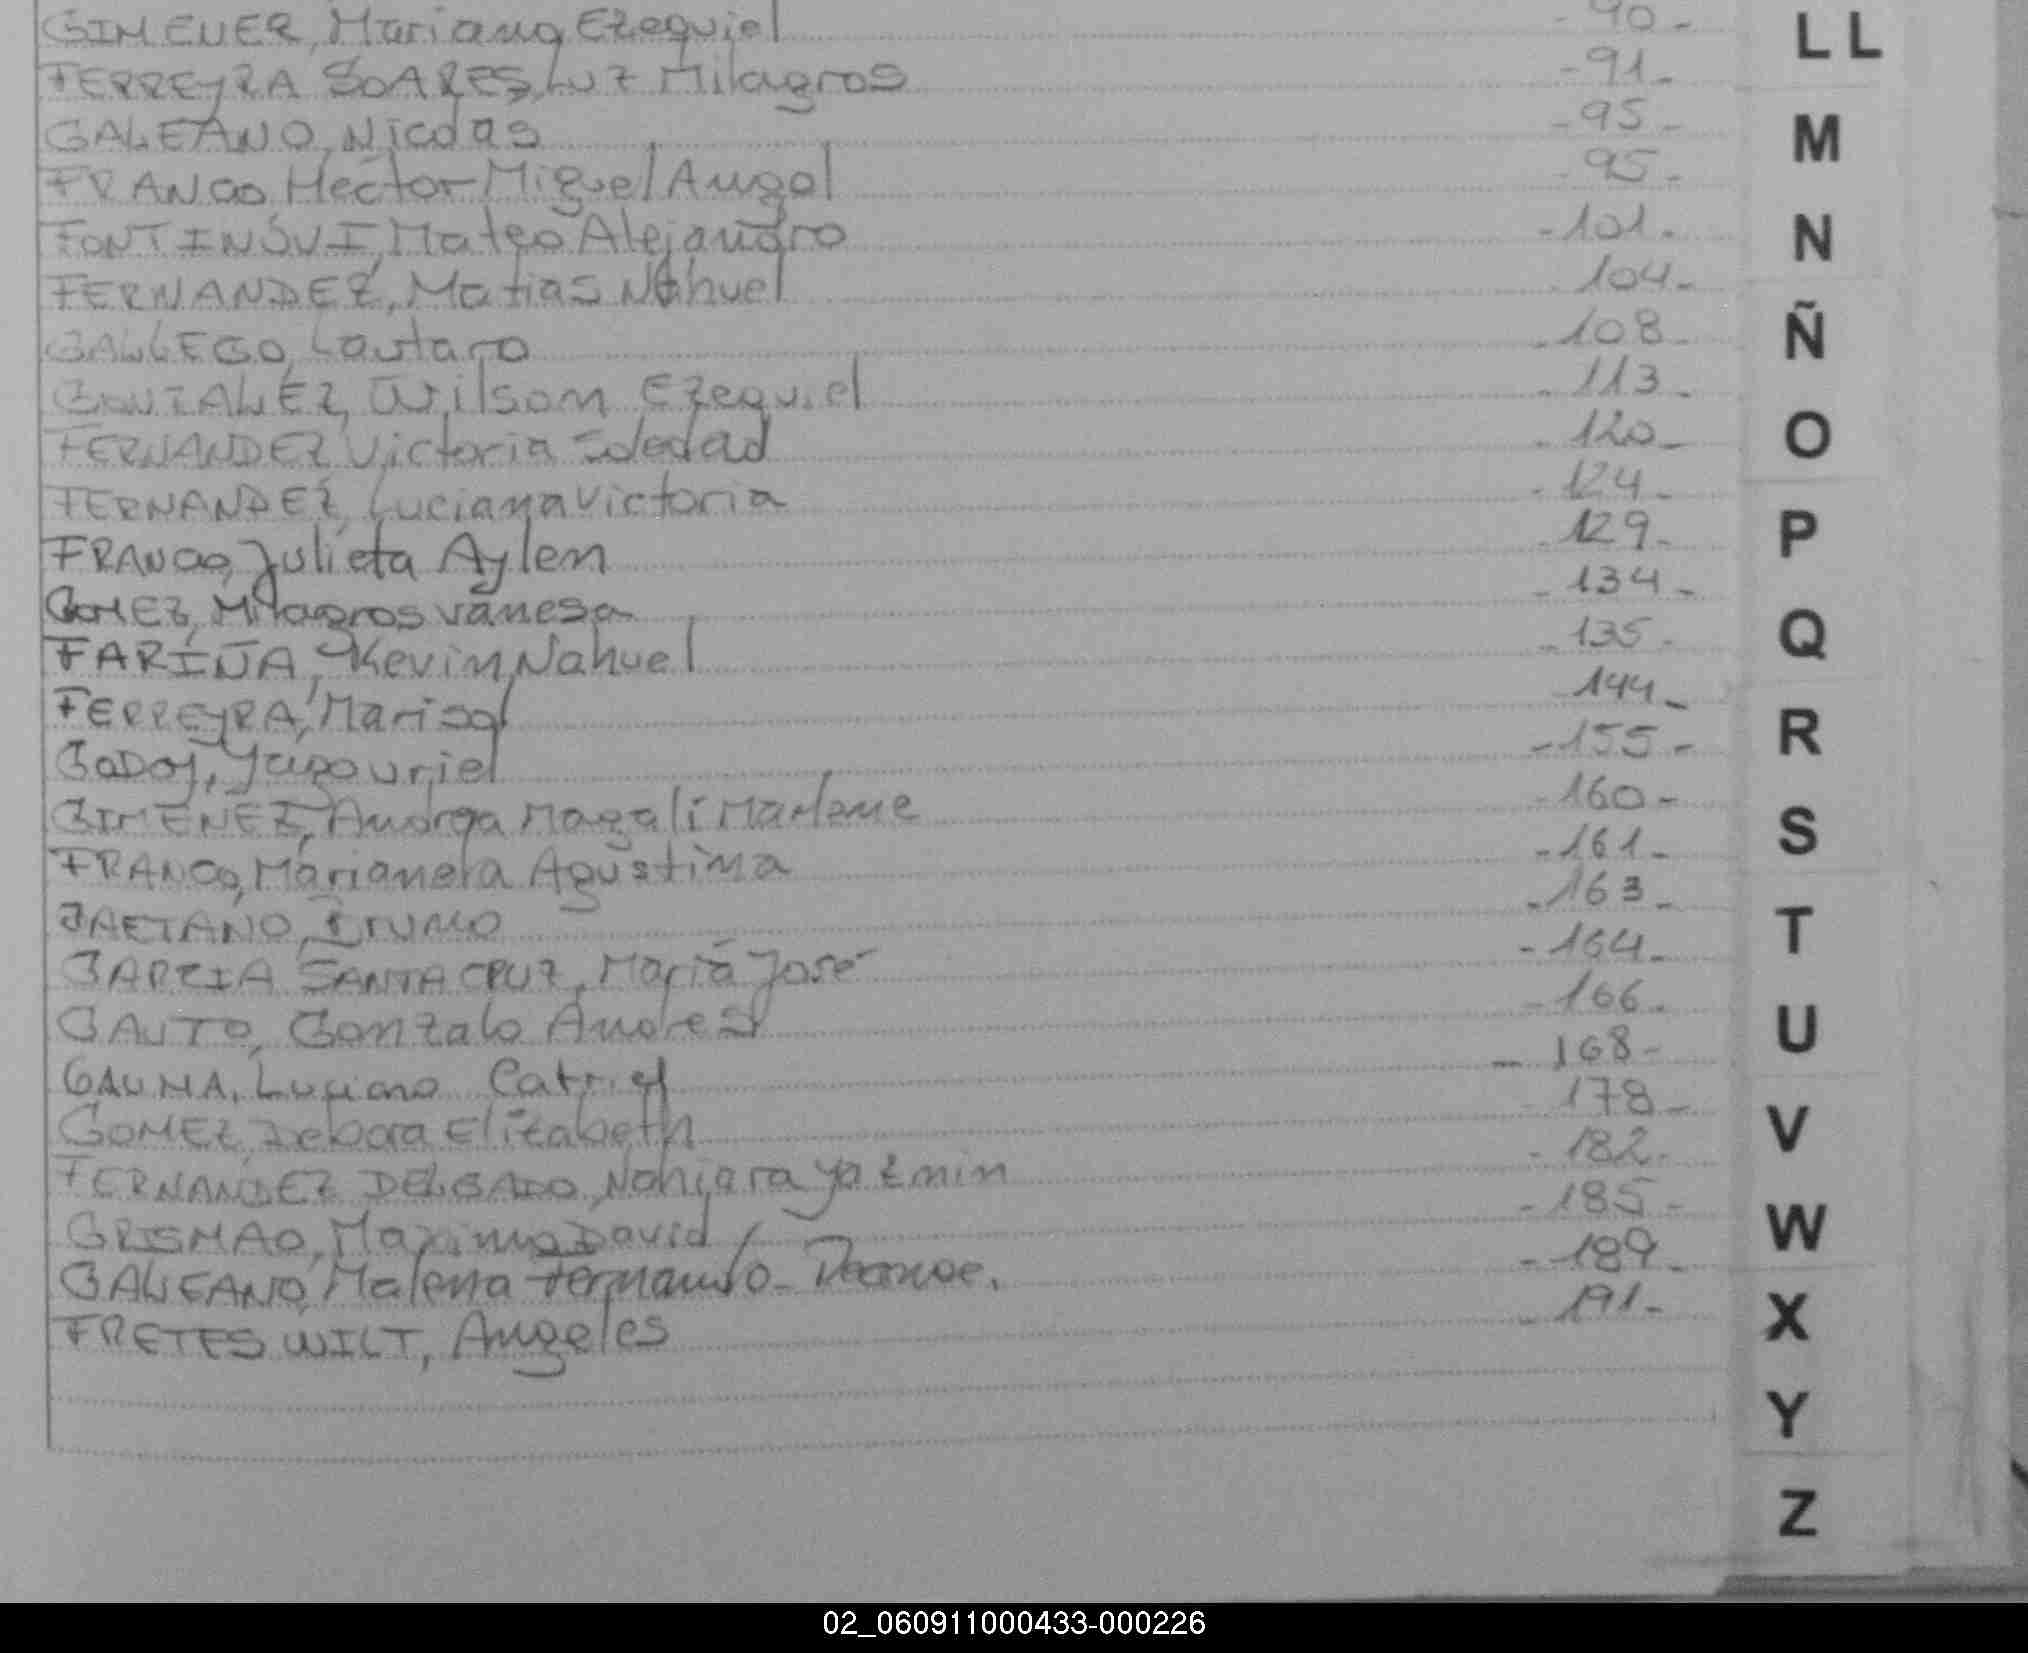 GIMENEZ, Mariano Ezequiel - 90 -
FERREYRA SOARES, Luz Milagros - 91 -
GALEANO, Nicolas - 95 -
FRANCO, Hector Miguel Angel - 95 -
Mateo Alejandro - 101 -
FERNANDEZ, Matias Nahuel - 104 -
GALLEGO, Lautaro - 108 -
GONZALEZ, Wilson Ezequiel - 113 -
FERNANDEZ Victoria Soledad - 120 -
FERNANDEZ, Luciana Victoria - 124 -
FRANCO, Julieta Aylen - 129 -
GOMEZ, Milagros Vanesa - 134 -
FARIÑA, Kevin Nahuel - 135 -
FERREYRA, Marisol - 144 -
GODOY, - 155 -
GIMENEZ, Andrea Magali Marlene - 160 -
FRANCO, Marianela Agustina - 161 -
GAETANO, Bruno - 163 -
GARCIA SANTA CRUZ, María José - 164 -
GAUTO, Gonzalo Andres - 166 -
GAUNA, Luciano Catriel - 168 -
GOMEZ, Debora Elizabeth - 178 -
FERNANDEZ DELGADO, Nahiara Yazmin - 182 -
GRISMAO, Maximo David - 185 -
GALEANO, Malena - 189 -
FRETES WILT, Angeles - 191 -
LL
M
N
Ñ
O
P
Q
R
S
T
U
V
W
X
Y
Z
02_060911000433-000226